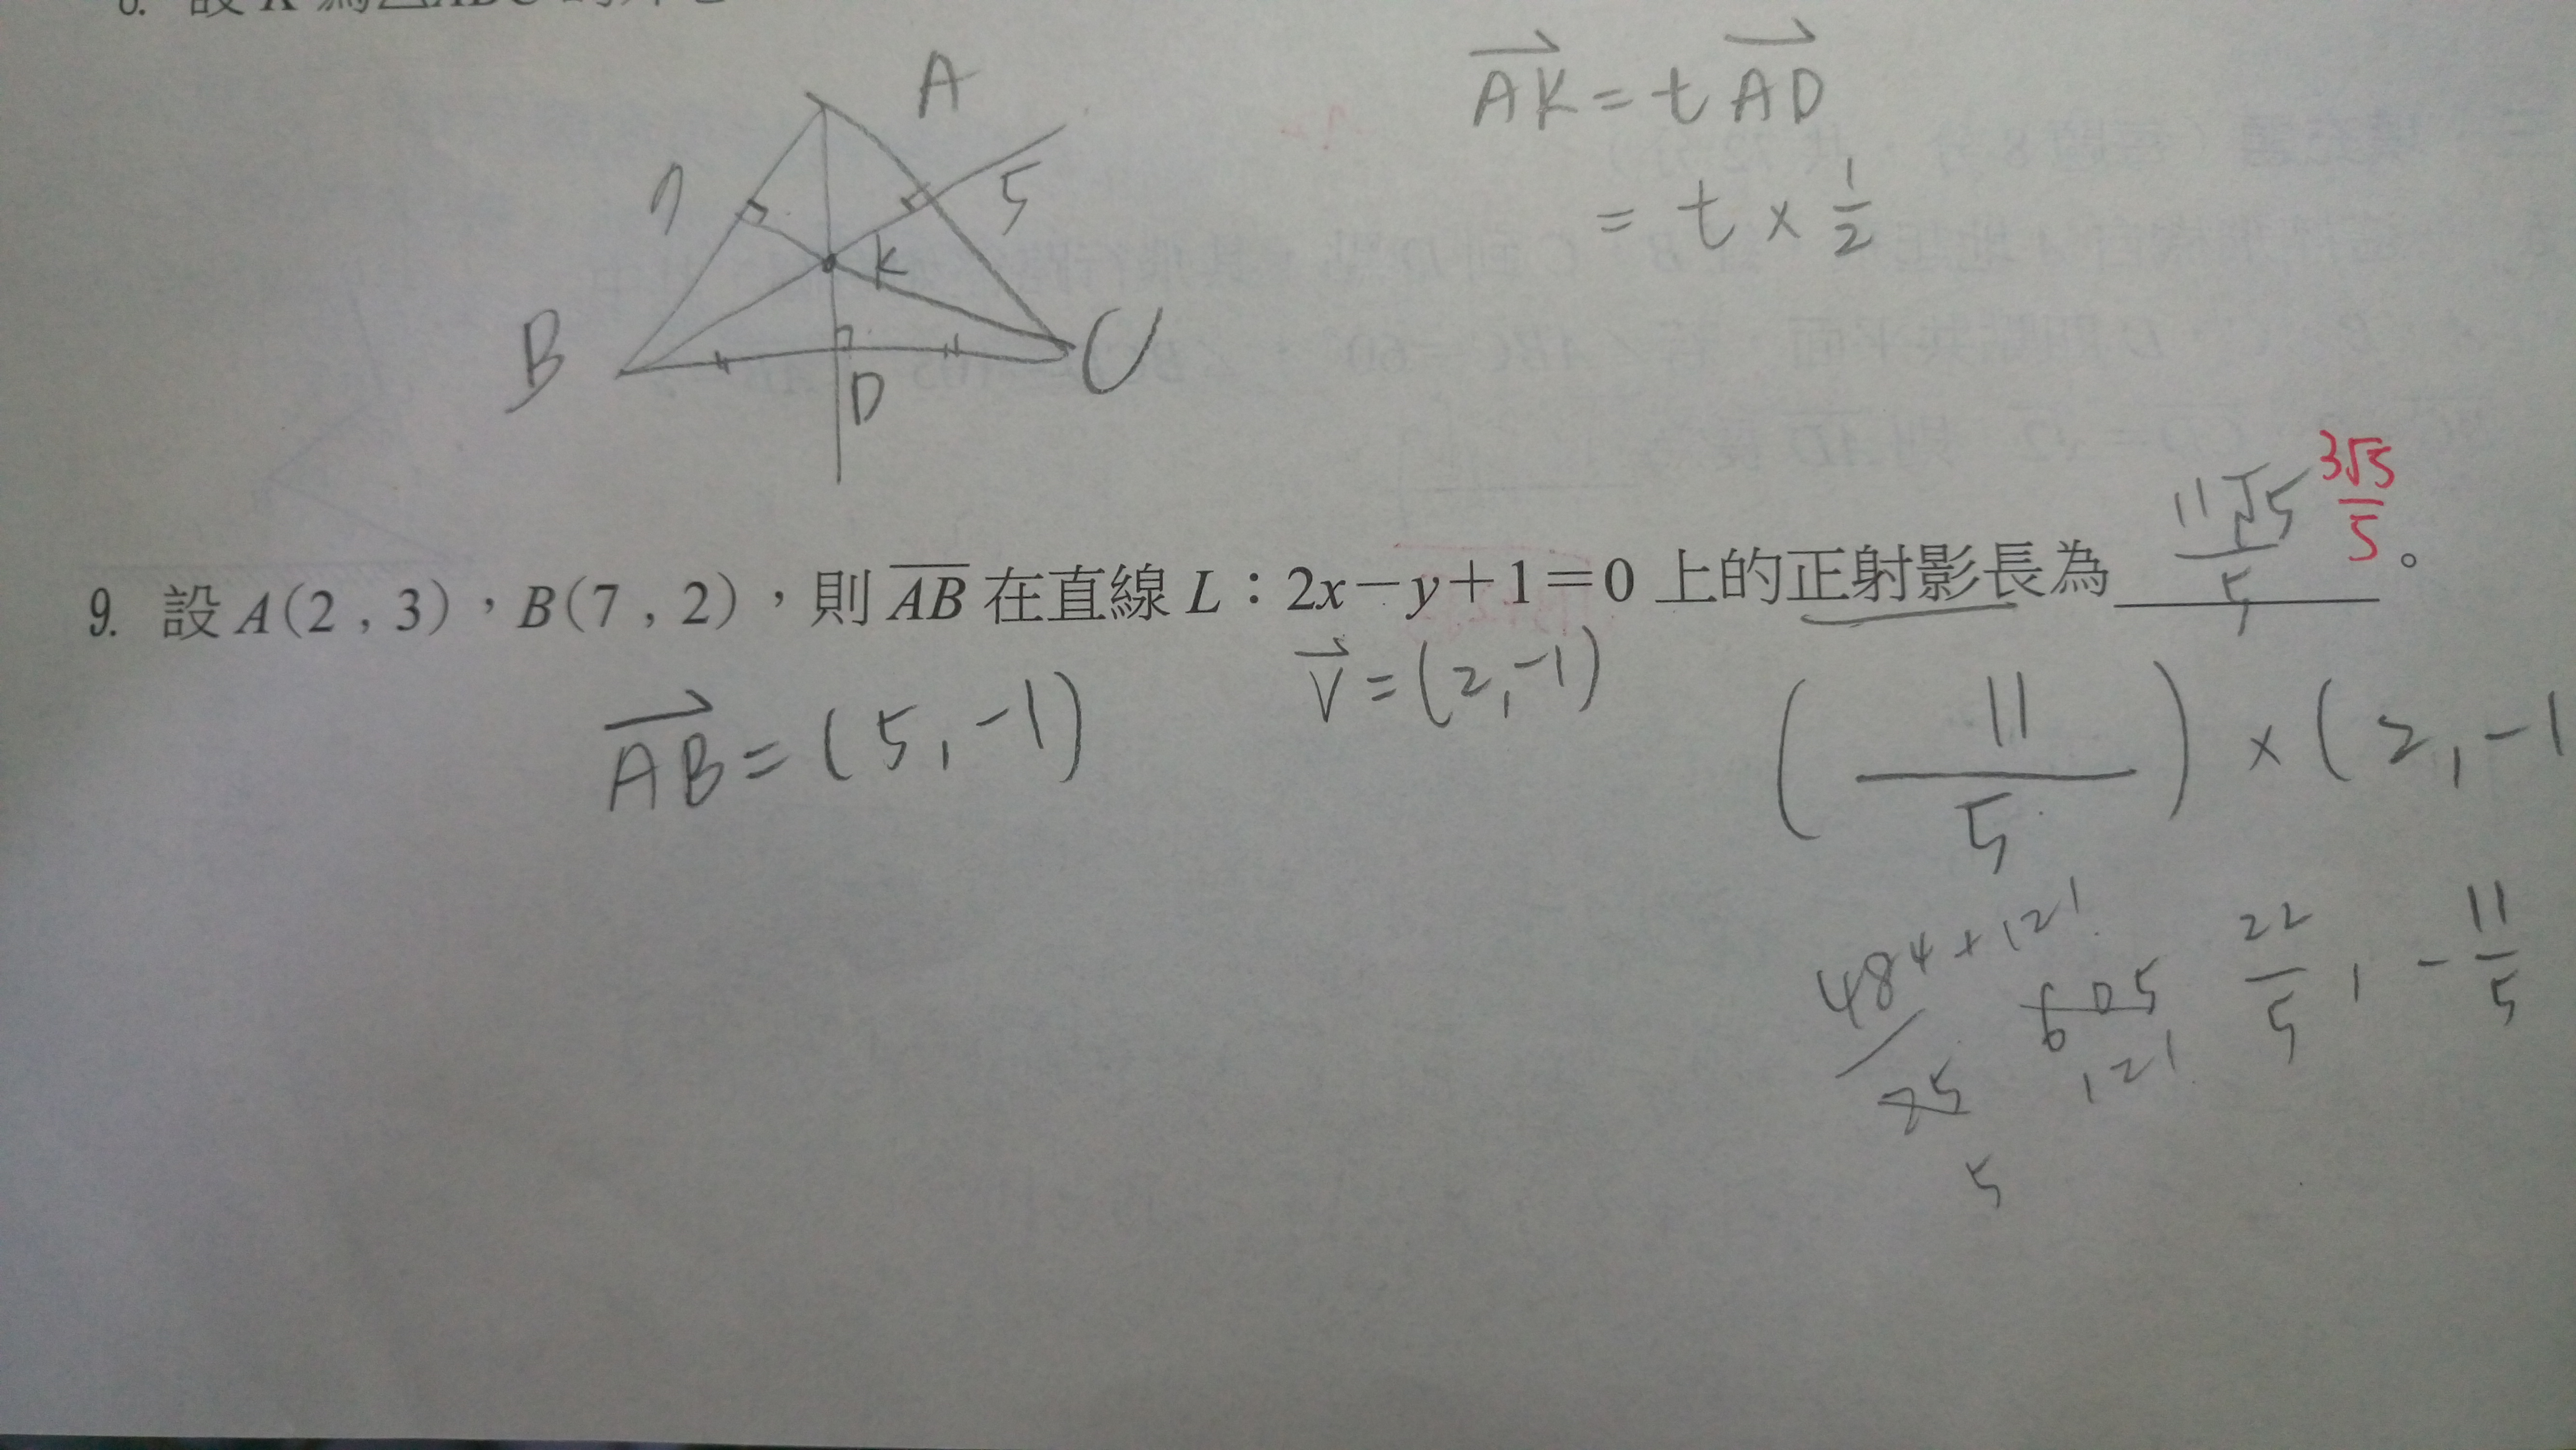 A
7
5
K
B
D
C
AK = tAD
= t × 1/2
9. 設 A(2 , 3),B(7 , 2),則 AB 在直線 L:2x−y+1=0 上的正射影長為 11√5/5 3√5/5 。
AB = (5, -1)
V = (2, -1)
( 11/5 ) × (2, -1
484 + 121
605
22/5 , - 11/5
25
121
5